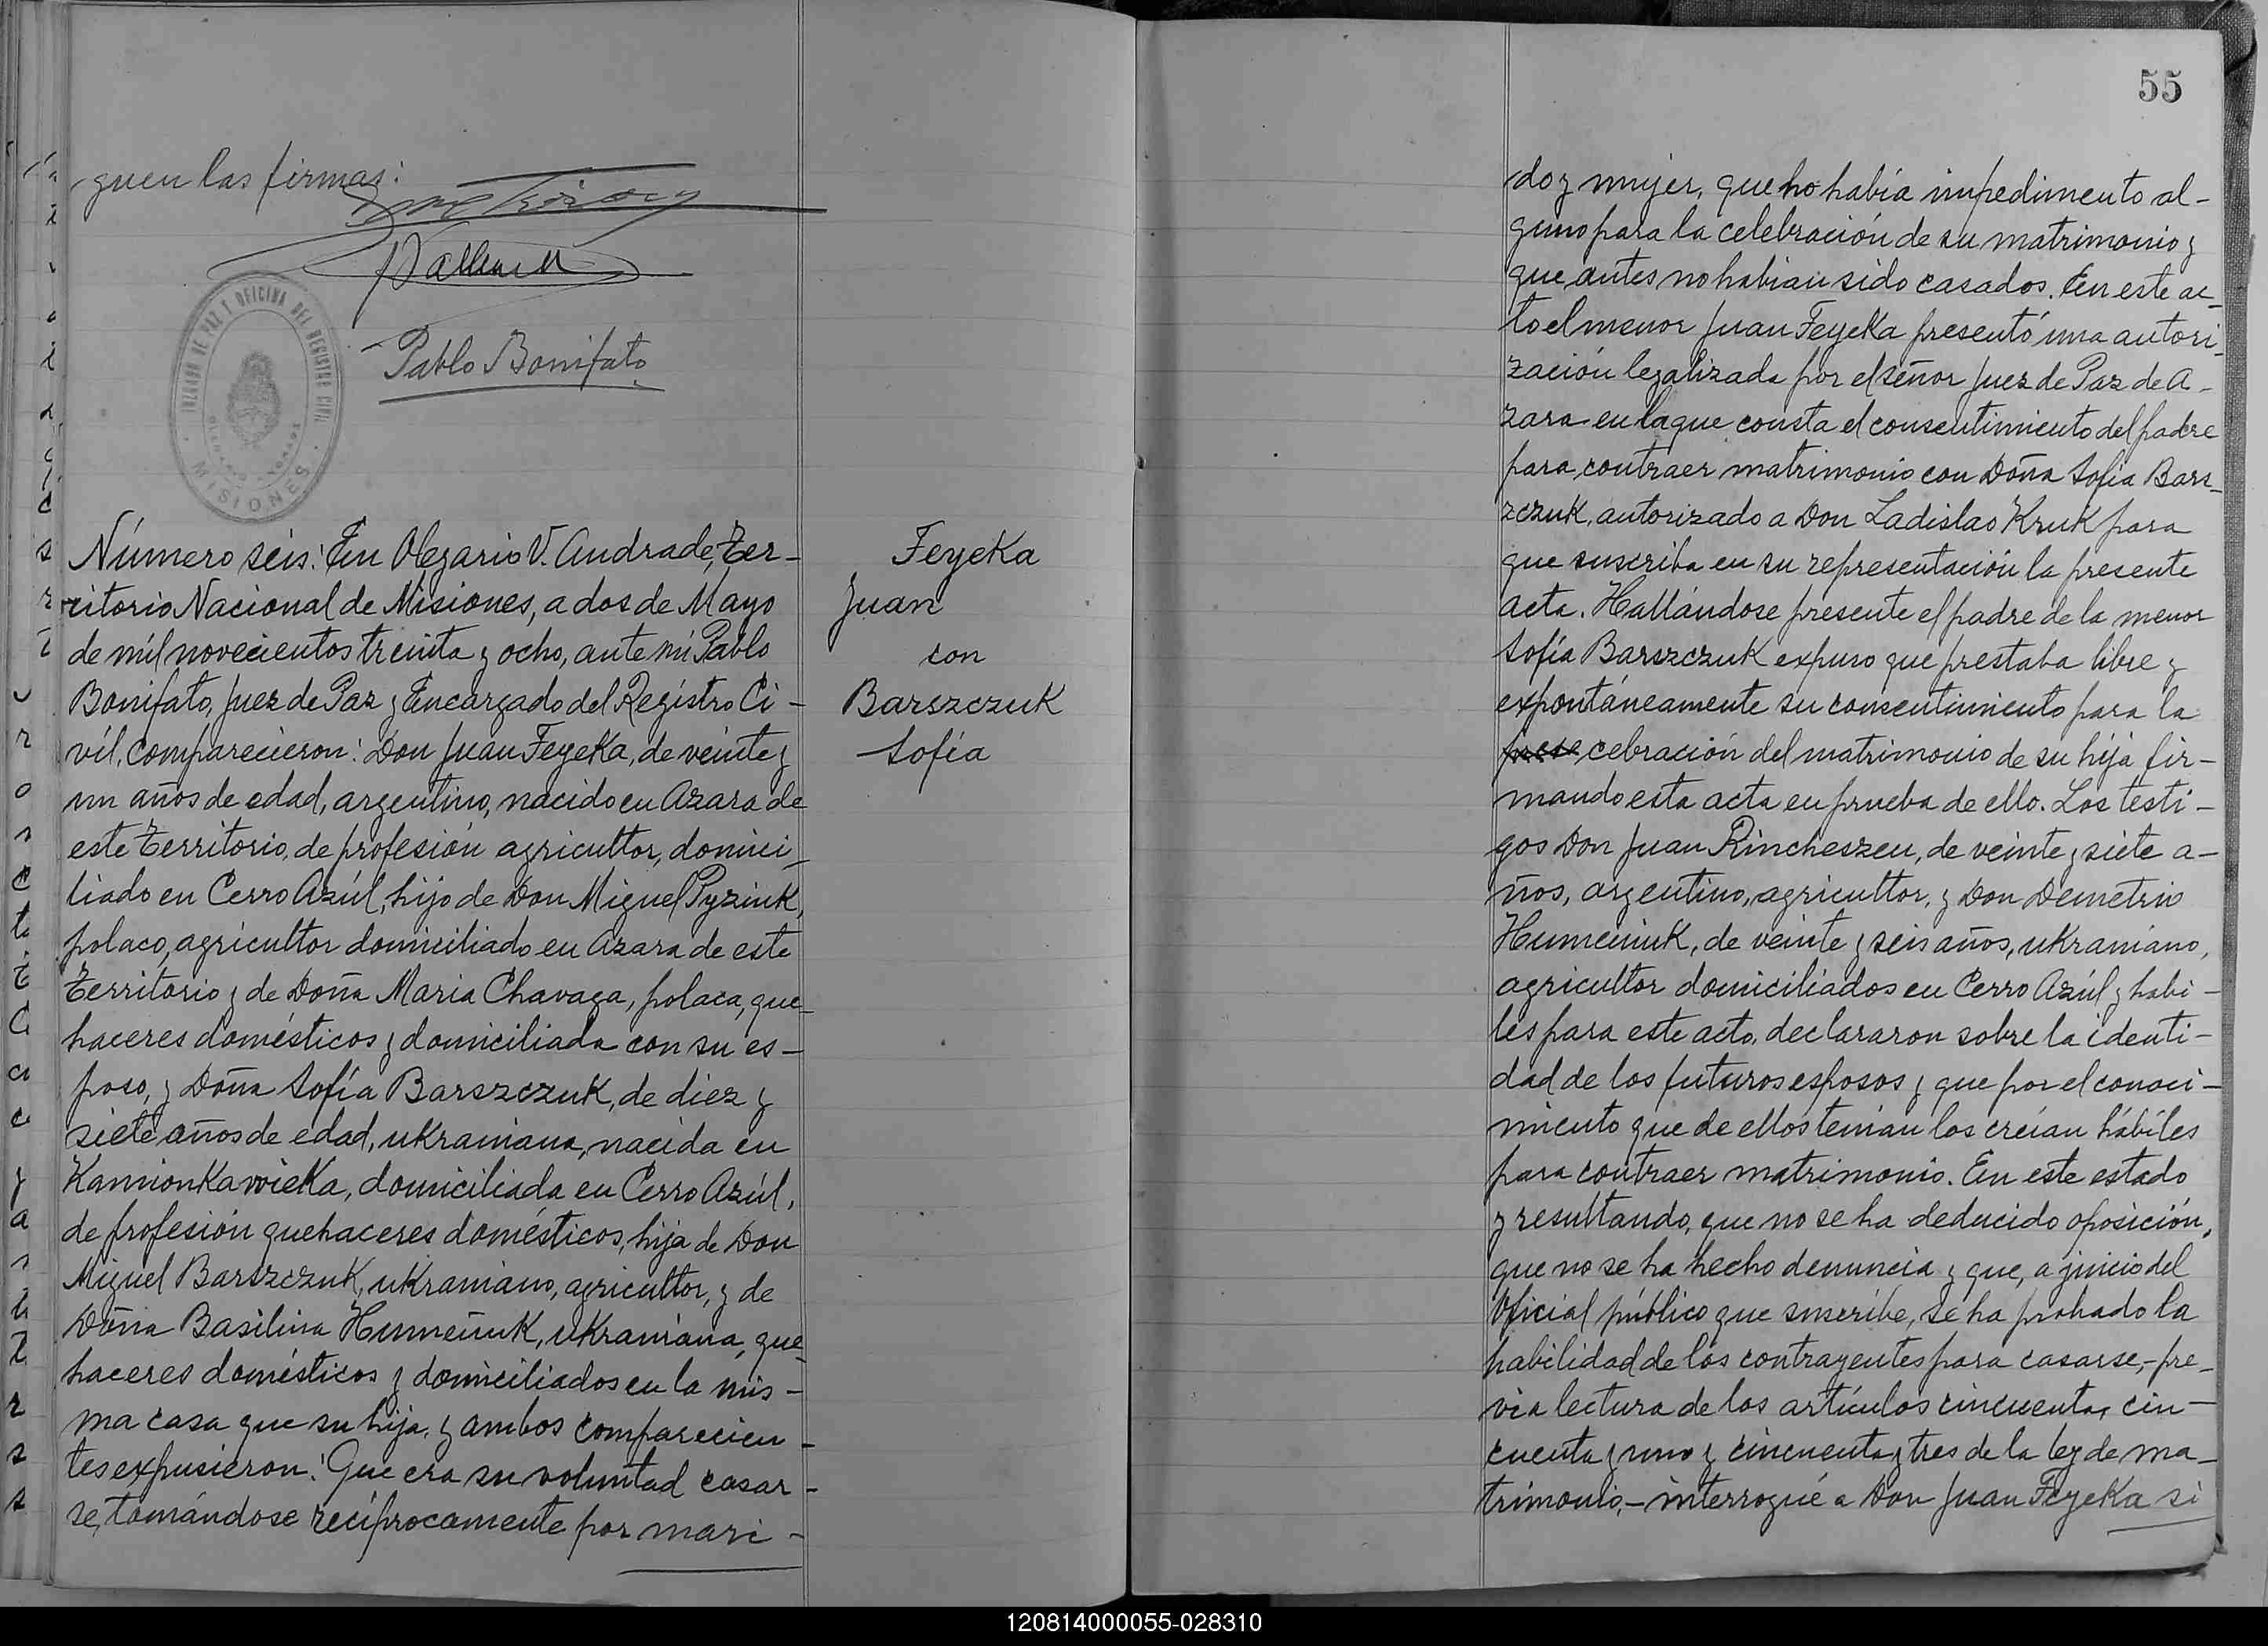 guen las firmas:
Pablo Bonifato
JUZGADO DE PAZ Y OFICINA DEL REGISTRO CIVIL
MISIONES
Número seis: En Olegario V. Andrade, Ter-
ritorio Nacional de Misiones, a dos de Mayo
de mil novecientos treinta y ocho, ante mí Pablo
Bonifato, Juez de Paz y Encargado del Registro Ci-
vil, comparecieron: Don Juan Feyeka, de veinte y
un años de edad, argentino, nacido en Azara de
este Territorio, de profesión agricultor, domici-
liado en Cerro Azúl, hijo de Don Miguel Pyziuk,
polaco, agricultor domiciliado en Azara de este
Territorio y de Doña Maria Chavaga, polaca, que-
haceres domésticos y domiciliada con su es-
poso, y Doña Sofía Barszczuk, de diez y
siete años de edad, ukraniana, nacida en
Kamionkawieka, domiciliada en Cerro Azúl,
de profesión quehaceres domésticos, hija de Don
Miguel Barszczuk, ukraniano, agricultor, y de
Doña Basilina Humeñuk, ukraniana, que-
haceres domésticos y domiciliados en la mis-
ma casa que su hija, y ambos comparecien-
tes expusieron: Que era su voluntad casar-
se, tomándose recíprocamente por mari-
Feyeka
Juan
con
Barszczuk
Sofía
55
do y mujer, que no había impedimento al-
guno para la celebración de su matrimonio y
que antes no habian sido casados. En este ac-
to el menor Juan Feyeka presentó una autori-
zación legalizada por el señor Juez de Paz de A-
zara en la que consta el consentimiento del padre
para contraer matrimonio con Doña Sofia Bars-
zczuk, autorizado a Don Ladislao Kruk para
que suscriba en su representación la presente
acta. Hallándose presente el padre de la menor
Sofía Barszczuk expuso que prestaba libre y
expontáneamente su consentimiento para la
cebración del matrimonio de su hija fir-
mando esta acta en prueba de ello. Los testi-
gos Don Juan Rincheszen, de veinte y siete a-
ños, argentino, agricultor, y Don Demetrio
Humeniuk, de veinte y seis años, ukraniano,
agricultor domiciliados en Cerro Azúl y habi-
les para este acto, declararon sobre la identi-
dad de los futuros esposos y que por el conoci-
miento que de ellos tenían los creían hábiles
para contraer matrimonio. En este estado
y resultando, que no se ha deducido oposición,
que no se ha hecho denuncia y que, a juicio del
Oficial público que suscribe, se ha probado la
habilidad de los contrayentes para casarse,-pre-
via lectura de los artículos cincuenta, cin-
cuenta y uno y cincuenta y tres de la ley de ma-
trimonio,- interrogué a Don Juan Feyeka si
120814000055-028310